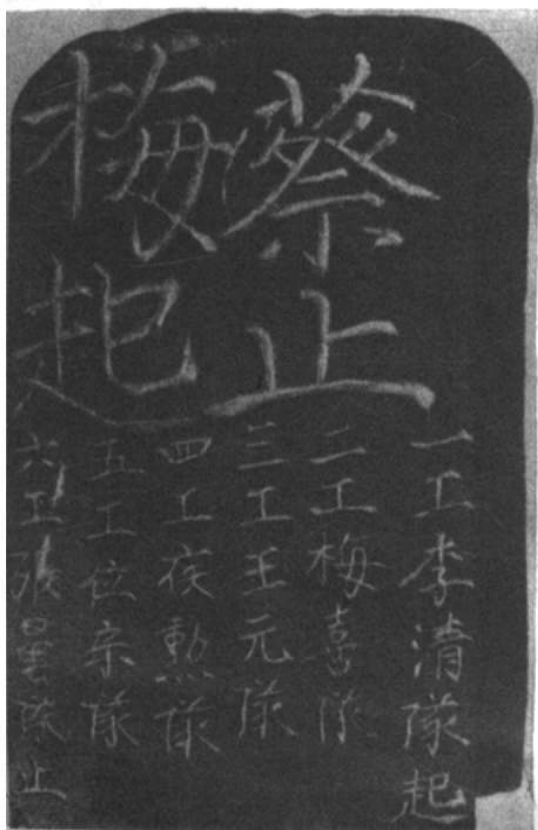 蔡止
梅起
一工李清隊起
二工梅喜隊
三工王元隊
四工侯勲隊
五工位宗隊
六工張暈隊止